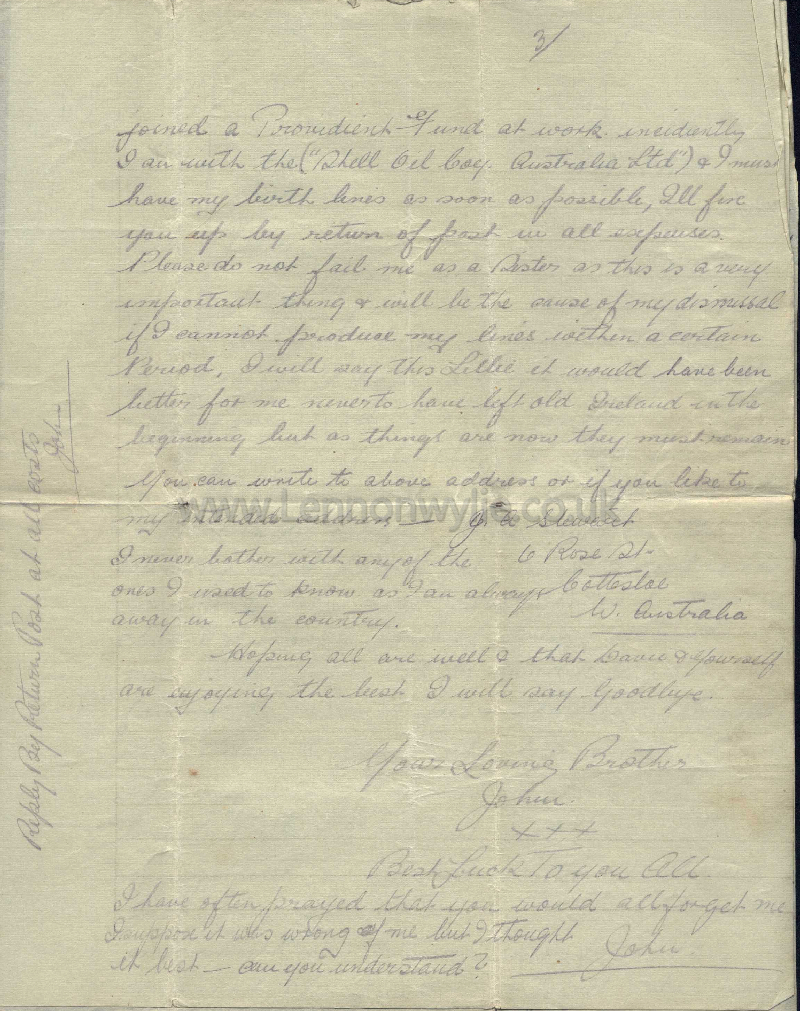 3/
joined a Providient Fund at work incidently
I am with the ("Shell Oil Coy. Australia Ltd") & I must
have my birth lines as soon as possible, I'll fix
you up by return of post in all expenses.
Please do not fail me as a Sister as this is a very
important thing & will be the cause of my dismissal
if I cannot produce my lines within a certain
Period, I will say this Lillie it would have been
better for me never to have left old Ireland in the
beginning but as things are now they must remain
You can write to above address or if you like to
my address — J Stewart
I never bother with any of the 6 Rose St-
ones I used to know as I am always Cottesloe
away in the country. W. Australia
Hoping all are well & that & yourself
are enjoying the best I will say Goodbye.
Your Loving Brother
John.
xxx
Best Luck To you All.
I have often prayed that you would all forget me
I suppose it was wrong of me but I thought
it best — can you understand? John
Reply By Return Post at all costs
John
www.Lennonwylie.co.uk